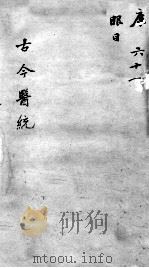 廣 六十一
眼目
古今醫統
研狗
mtoou.info